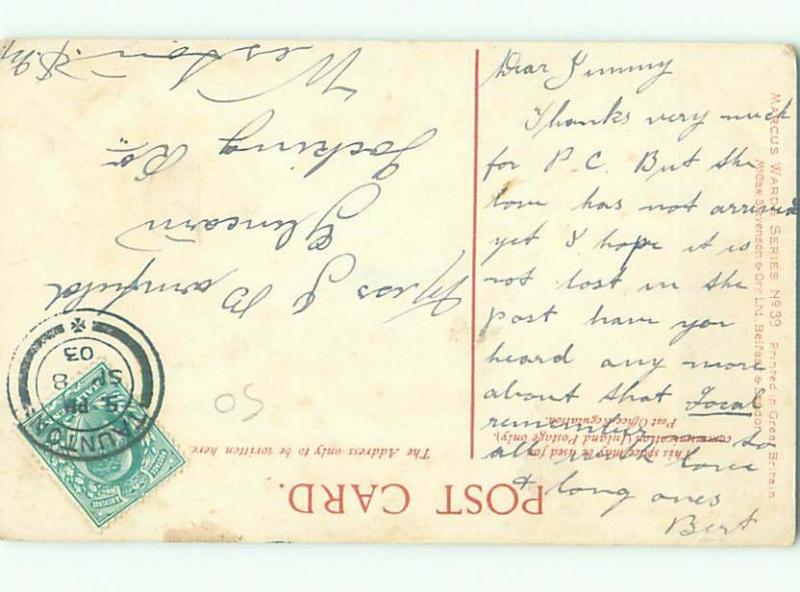 Dear Jimmy
Thanks very much
for P.C. But the
love has not arrived
yet I hope it is
not lost in the
post have you
heard any more
about that Local
remember me to
all with love
& long ones
Bert
POST CARD.
This space may be used for
communication (Inland Postage only).
Post Office Regulation.
The Address only to be written here.
Miss J Barnfield
Glencairn
Locking Rd.
Weston S.M.
TAUNTON
5 PM
SP 8
03
50
MARCUS WARD'S SERIES No 39 Printed in Great Britain
McCaw Stevenson & Orr Ltd. Belfast & London